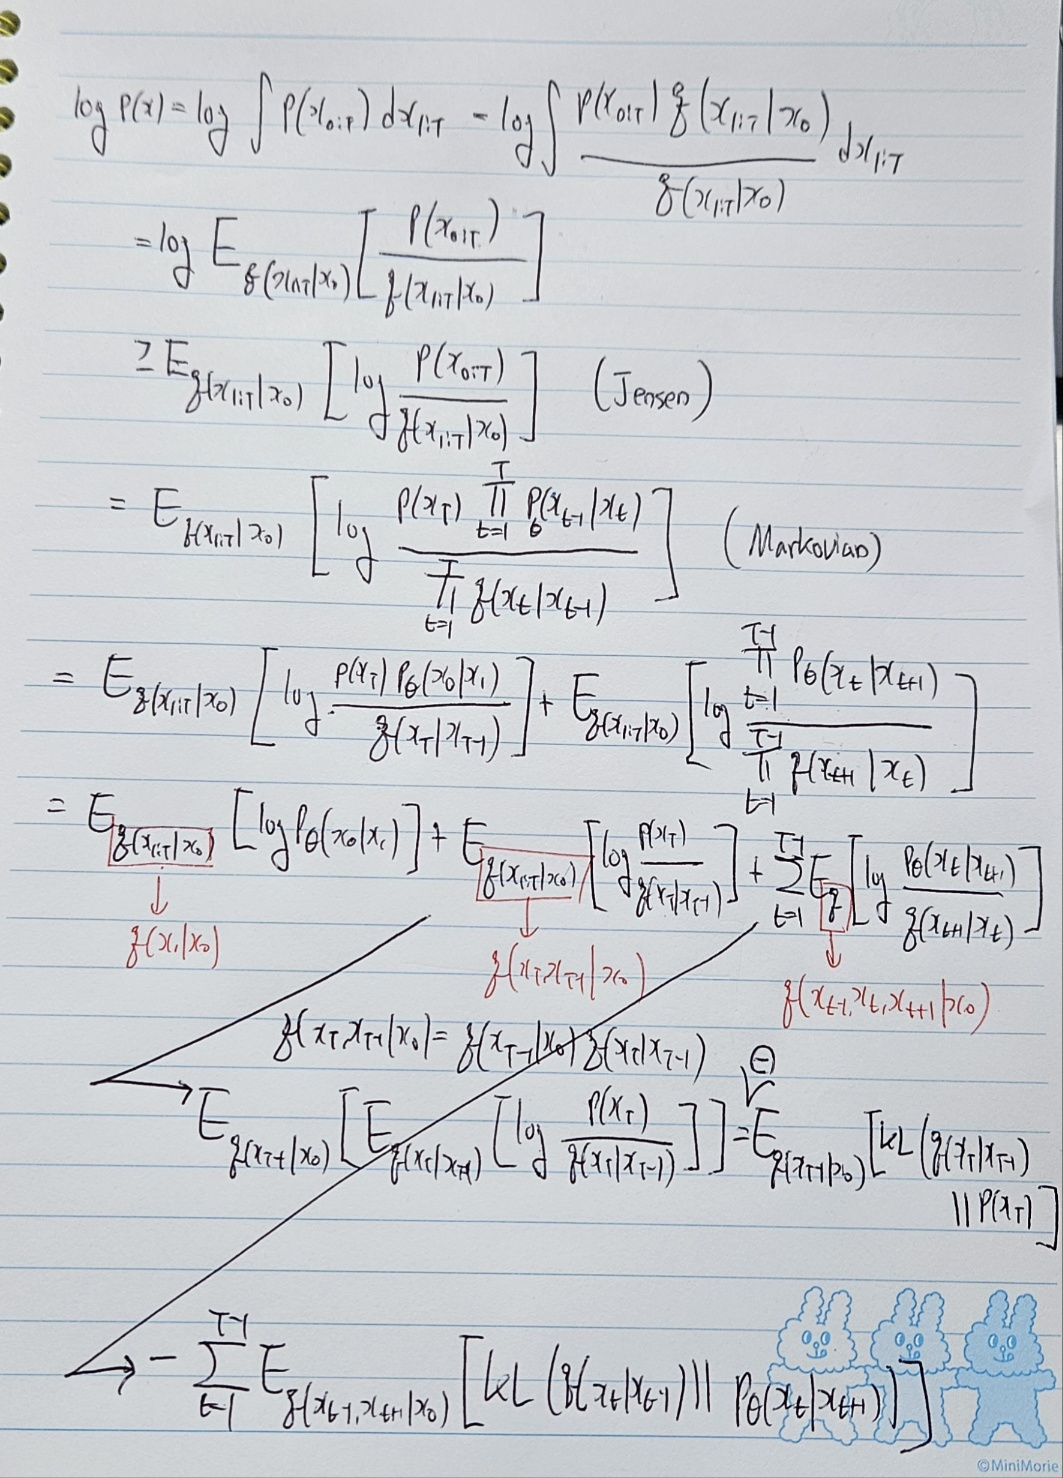 log P(x) = log ∫ P(x_{0:T}) dx_{1:T} = log ∫ \frac{P(x_{0:T}) q(x_{1:T}|x_0)}{q(x_{1:T}|x_0)} dx_{1:T}
= log E_{q(x_{1:T}|x_0)} [ \frac{P(x_{0:T})}{q(x_{1:T}|x_0)} ]
≥ E_{q(x_{1:T}|x_0)} [ log \frac{P(x_{0:T})}{q(x_{1:T}|x_0)} ] (Jensen)
= E_{q(x_{1:T}|x_0)} [ log \frac{P(x_T) ∏_{t=1}^{T} P_θ(x_{t-1}|x_t)}{∏_{t=1}^{T} q(x_t|x_{t-1})} ] (Markovian)
= E_{q(x_{1:T}|x_0)} [ log \frac{P(x_T) P_θ(x_0|x_1)}{q(x_T|x_{T-1})} ] + E_{q(x_{1:T}|x_0)} [ log \frac{∏_{t=1}^{T-1} P_θ(x_t|x_{t+1})}{∏_{t=1}^{T-1} q(x_{t+1}|x_t)} ]
= E_{q(x_{1:T}|x_0)} [ log P_θ(x_0|x_1) ] + E_{q(x_{1:T}|x_0)} [ log \frac{P(x_T)}{q(x_T|x_{T-1})} ] + ∑_{t=1}^{T-1} E_q [ log \frac{P_θ(x_t|x_{t+1})}{q(x_{t+1}|x_t)} ]
↓ ↓ ↓
q(x_1|x_0) q(x_T, x_{T-1}|x_0) q(x_{t-1}, x_t, x_{t+1}|x_0)
q(x_T, x_{T-1}|x_0) = q(x_{T-1}|x_0) q(x_T|x_{T-1})
⊖
→ E_{q(x_{T-1}|x_0)} [ E_{q(x_T|x_{T-1})} [ log \frac{P(x_T)}{q(x_T|x_{T-1})} ] ] = E_{q(x_{T-1}|x_0)} [ KL ( q(x_T|x_{T-1})
|| P(x_T) ]
→ - ∑_{t=1}^{T-1} E_{q(x_{t-1}, x_{t+1}|x_0)} [ KL ( q(x_t|x_{t-1}) || P_θ(x_t|x_{t+1}) ) ]
©MiniMorie